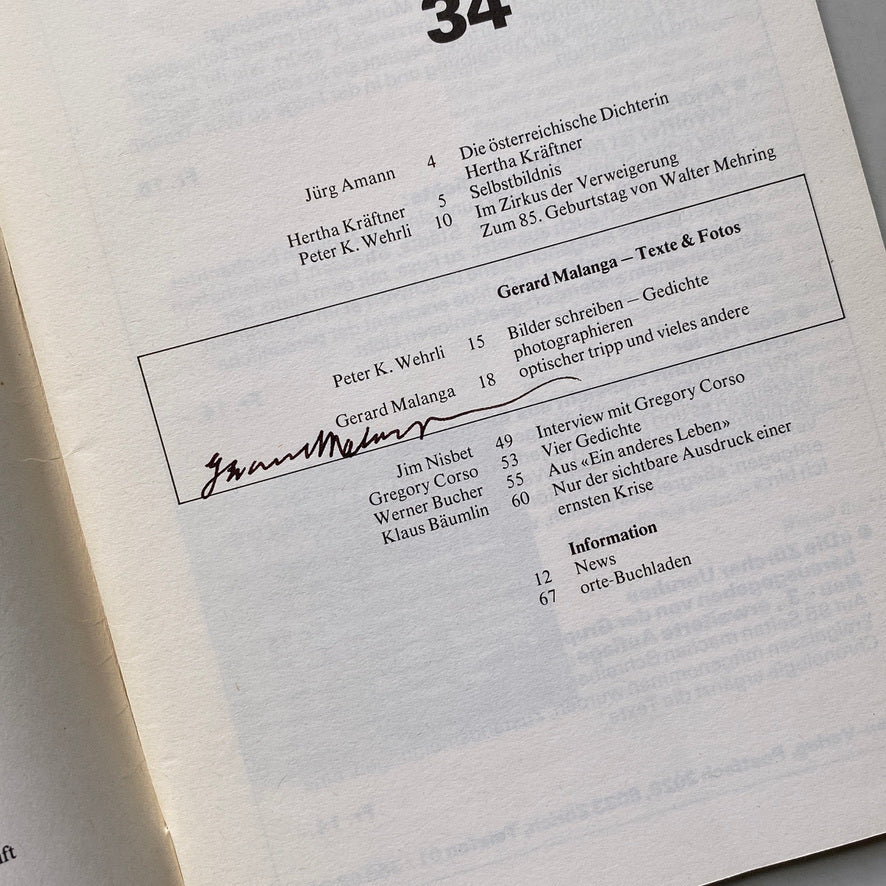 34
Jürg Amann 4 Die österreichische Dichterin
Hertha Kräftner
Hertha Kräftner 5 Selbstbildnis
Peter K. Wehrli 10 Im Zirkus der Verweigerung
Zum 85. Geburtstag von Walter Mehring
Gerard Malanga – Texte & Fotos
Peter K. Wehrli 15 Bilder schreiben – Gedichte
photographieren
Gerard Malanga 18 optischer tripp und vieles andere
Gerard Malanga
Jim Nisbet 49 Interview mit Gregory Corso
Gregory Corso 53 Vier Gedichte
Werner Bucher 55 Aus «Ein anderes Leben»
Klaus Bäumlin 60 Nur der sichtbare Ausdruck einer
ernsten Krise
Information
12 News
67 orte-Buchladen